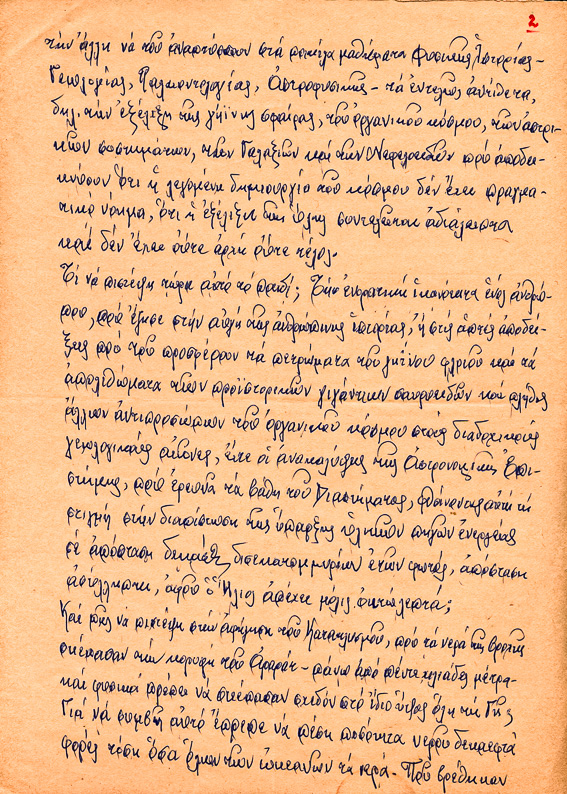 2
τὴν ἄλλη νὰ τοῦ ἀναπτύσσουν στὰ ποικίλα μαθήματα Φυσικῆς Ἱστορίας -
Γεωλογίας, Παλαιοντολογίας, Ἀστροφυσικῆς - τὰ ἐντελῶς ἀντίθετα,
δηλ. τὴν ἐξέλιξη τῆς γήινης σφαίρας, τοῦ ὀργανικοῦ κόσμου, τῶν ἀστρι-
κῶν συστημάτων, τῶν Γαλαξιῶν καὶ τῶν Νεφελοειδῶν ποὺ ἀποδει-
κνύουν ὅτι ἡ λεγομένη δημιουργία τοῦ κόσμου δὲν ἔχει πραγμα-
τικὸ νόημα, ὅτι ἡ ἐξέλιξη τῆς ὕλης συντελεῖται ἀδιάλειπτα
καὶ δὲν ἔχει οὔτε ἀρχὴ οὔτε τέλος.
Τί νὰ πιστέψη τώρα αὐτὸ τὸ παιδί; Τὴν ἱκανότητα ἑνὸς ἀνθρώ-
που, ποὺ ἔζησε στὴν αὐγὴ τῆς ἀνθρώπινης ἱστορίας, ἢ στὶς ἁπτὲς ἀποδεί-
ξεις ποὺ τοῦ προσφέρουν τὰ πετρώματα τοῦ γήινου φλοιοῦ καὶ τὰ
ἀπολιθώματα τῶν προϊστορικῶν γιγάντιων σαυροειδῶν καὶ πλῆθος
ἄλλων ἀντιπροσώπων τοῦ ὀργανικοῦ κόσμου στοὺς διαδοχικοὺς
γεωλογικοὺς αἰῶνες, εἴτε οἱ ἀνακαλύψεις τῆς Ἀστρονομικῆς Ἐπι-
στήμης, ποὺ ἐρευνᾶ τὰ βάθη τοῦ Διαστήματος, φθάνοντας αὐτὴ τὴ
στιγμὴ στὴν διαπίστωση τῆς ὕπαρξης ὑλικῶν πηγῶν ἐνεργείας
σὲ ἀπόσταση δισεκατομμυρίων ἐτῶν φωτός, ἀπόσταση
ἀσύλληπτη, ἀφοῦ ὁ Ἥλιος ἀπέχει μόλις ὀκτὼ λεπτά;
Καὶ πῶς νὰ πιστέψη στὴν ἀφήγηση τοῦ Κατακλυσμοῦ, ποὺ τὰ νερὰ τῆς βροχῆς
σκέπασαν τὴν κορυφὴ τοῦ Ἀραρὰτ - πάνω ἀπὸ πέντε χιλιάδες μέτρα -
καὶ φυσικὰ πρέπει νὰ σκέπασαν σχεδὸν στὸ ἴδιο ὕψος ὅλη τὴ Γῆ;
Γιὰ νὰ συμβῆ αὐτὸ ἔπρεπε νὰ πέση ποσότητα νεροῦ
φορὲς τόση ὅσα ὅλων τῶν ὠκεανῶν τὰ νερά. Ποῦ βρέθηκαν